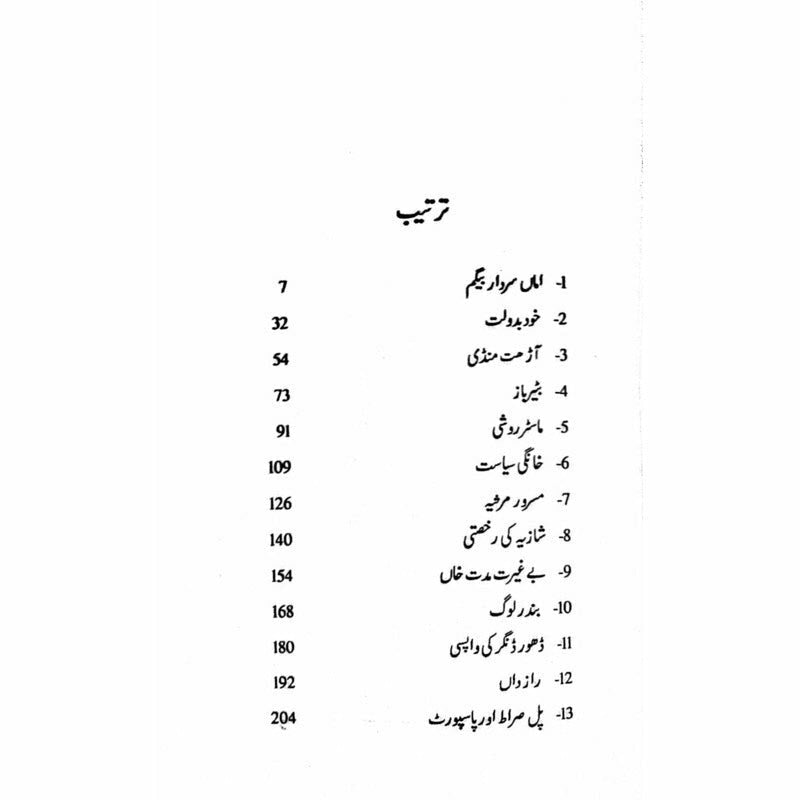 ترتیب
1- اماں سردار بیگم 7
2- خود بدولت 32
3- آڑھت منڈی 54
4- بٹیر باز 73
5- ماسٹر روشی 91
6- خانگی سیاست 109
7- مسرور مرثیہ 126
8- شازیہ کی رخصتی 140
9- بے غیرت مدت خاں 154
10- بندر لوگ 168
11- ڈھور ڈنگر کی واپسی 180
12- راز داں 192
13- پل صراط اور پاسپورٹ 204